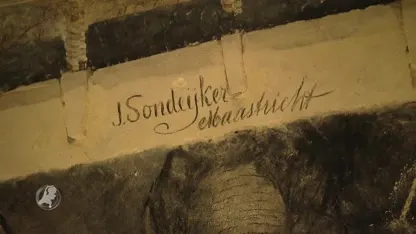 J. Sondeijker-
Maastricht